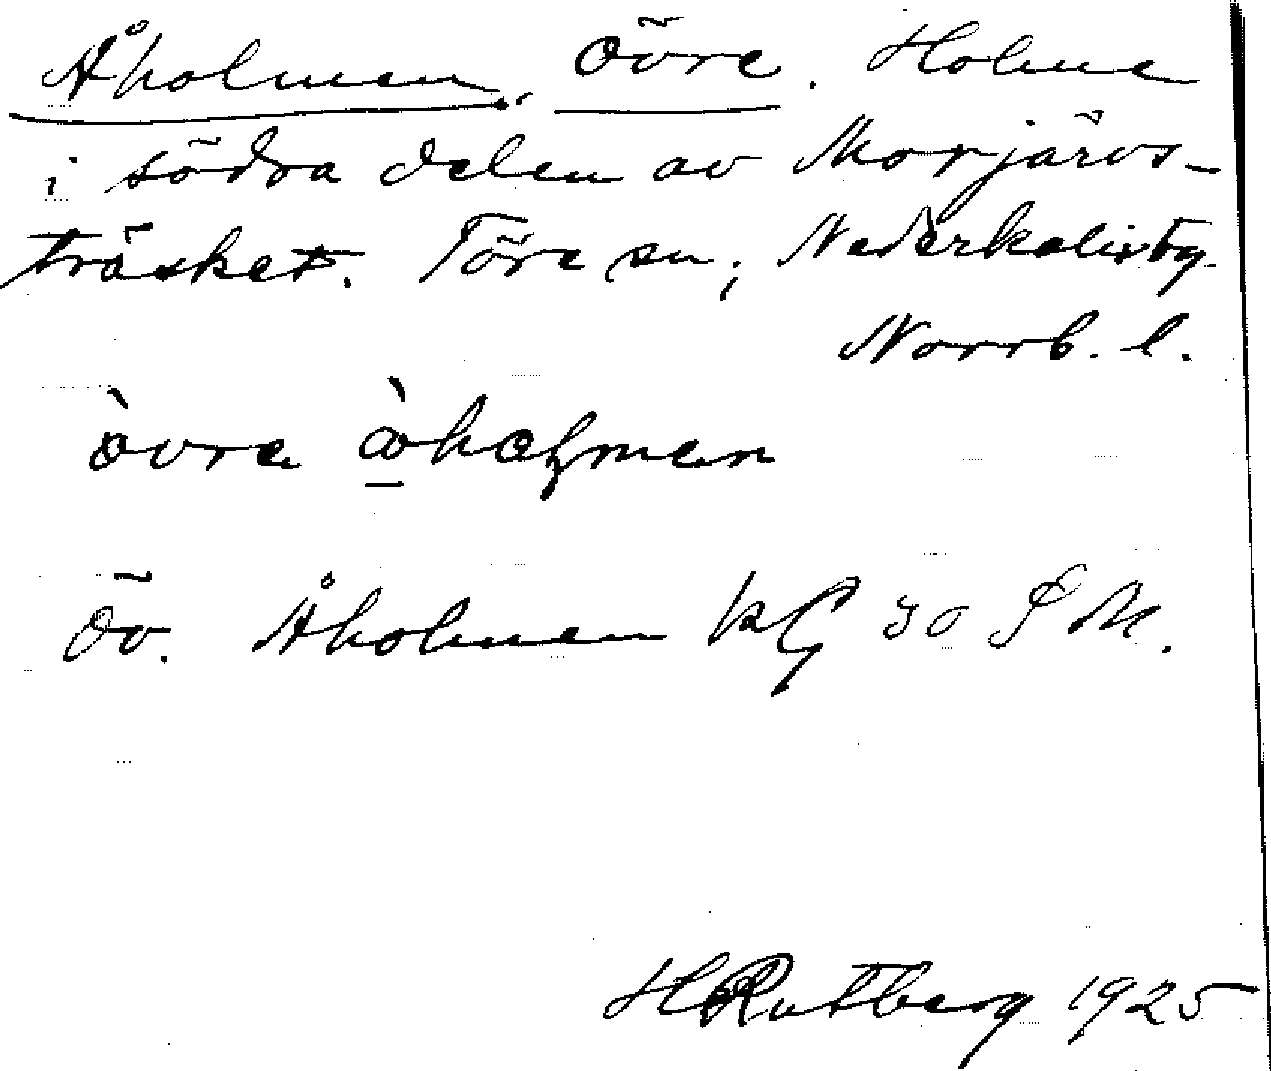 Åholmen, Övre. Holme
i södra delen av Morjärvs-
träsket. Töre sn; Nederkalix tg.
Norrb. l.
òvra
Öv. Åholmen kG 30 S M.
H Rutberg 1925